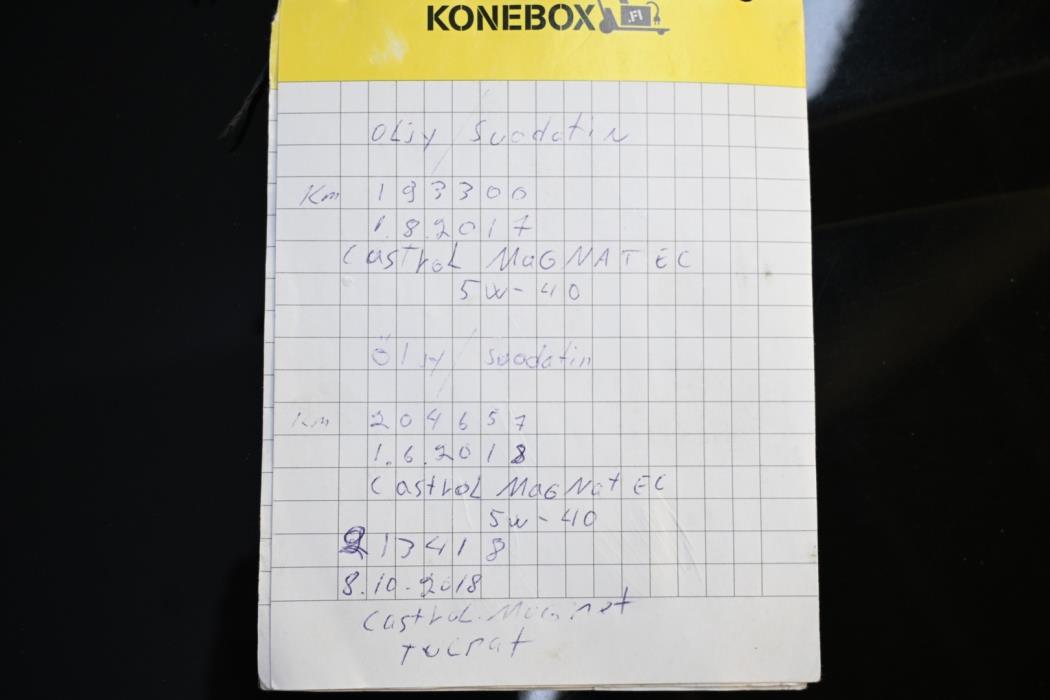 KONEBOX.FI
OLJy / Suodatin
Km 193300
1.8.2017
Castrol MaGNATEC
5w-40
ÖlJy / Suodatin
Km 204657
1.6.2018
CastroL MaGNatEC
5w-40
213418
8.10.2018
CastroL